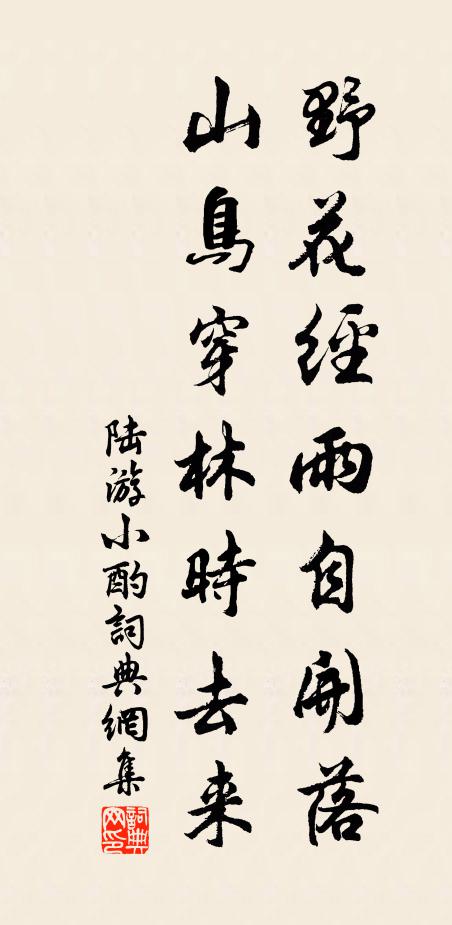 野花經雨自開落
山鳥穿林時去来
陆游小酌詞典網集
詞典網印